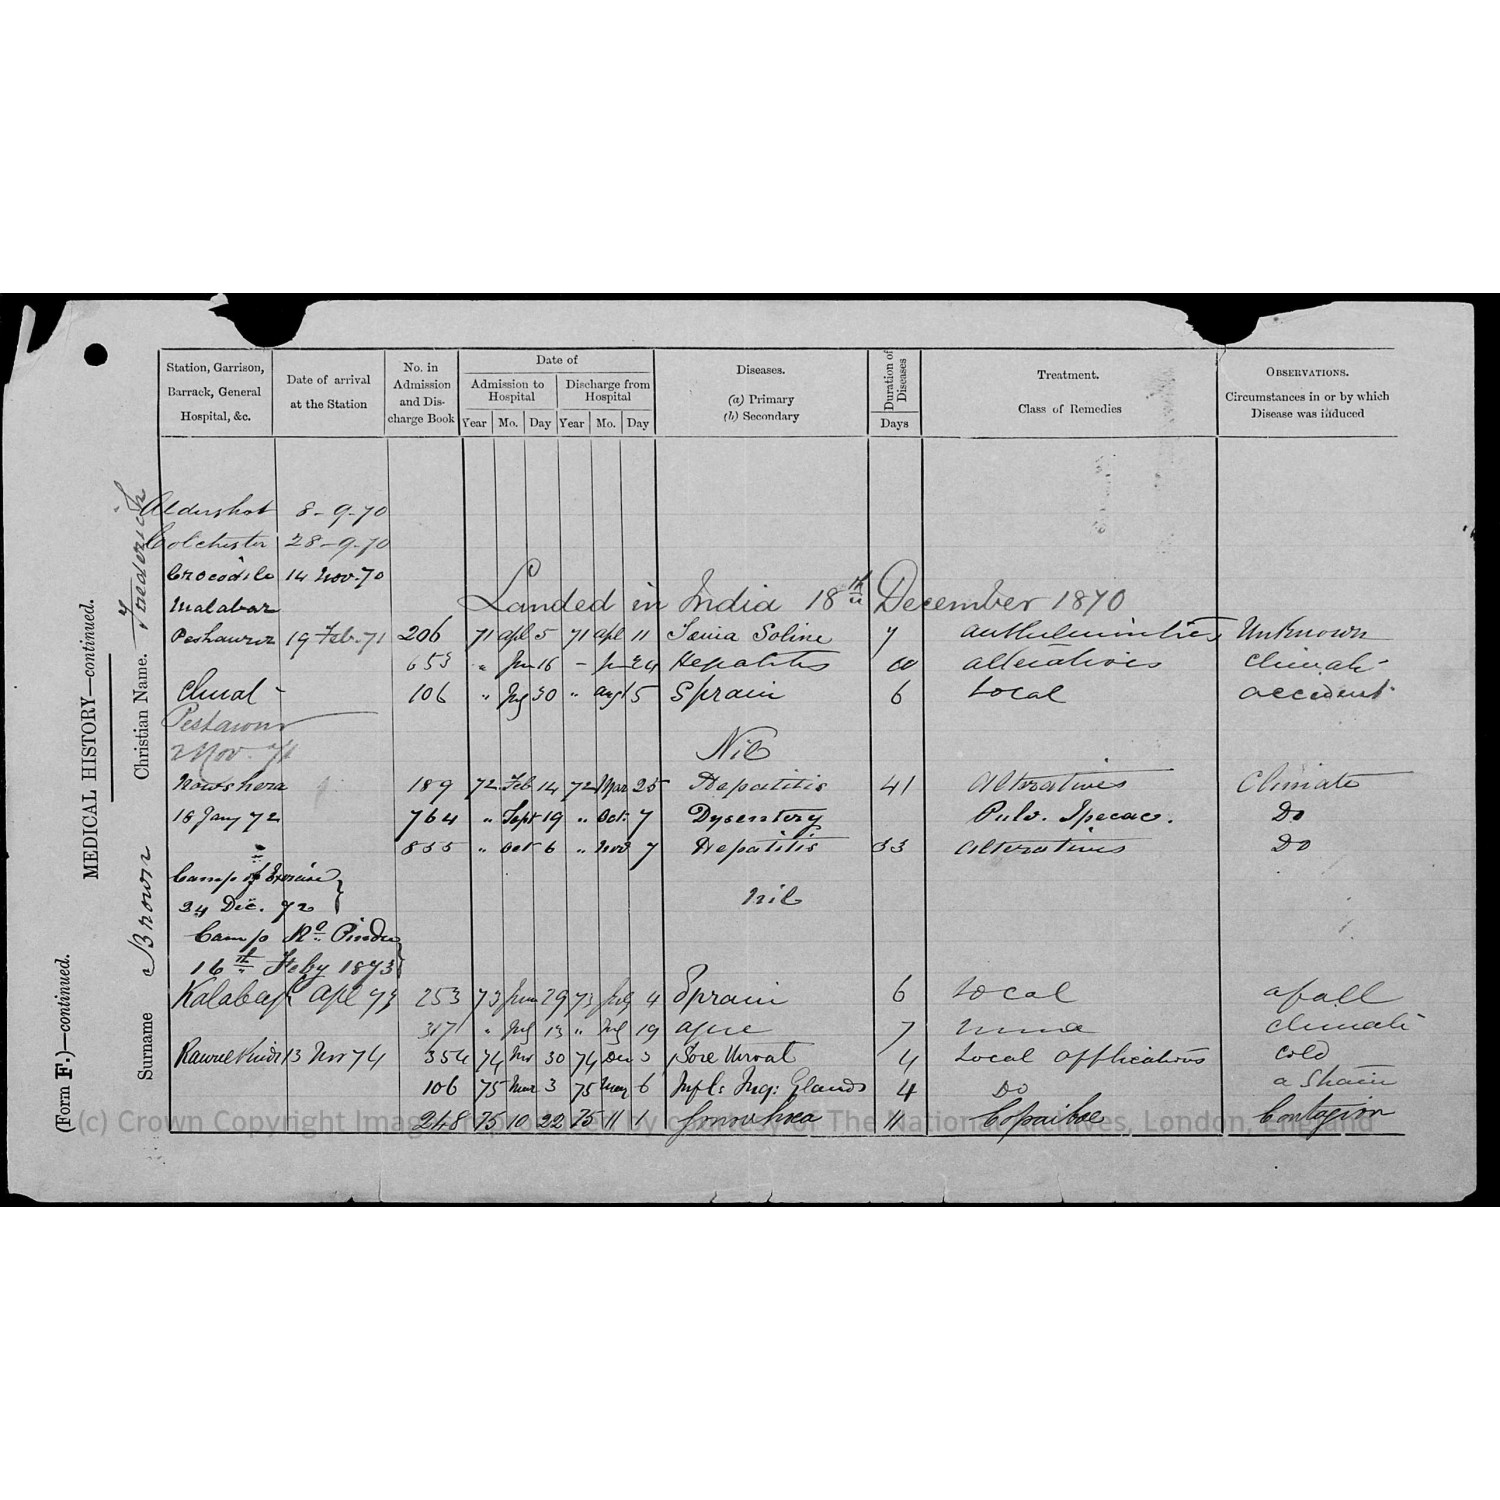 (Form F.)—continued.
MEDICAL HISTORY—continued.
Surname Brown Christian Name. Frederick
Station, Garrison, Barrack, General Hospital, &c.
Date of arrival at the Station
No. in Admission and Discharge Book
Date of
Admission to Hospital
Discharge from Hospital
Year Mo. Day Year Mo. Day
Diseases.
(a) Primary
(b) Secondary
Duration of Diseases
Days
Treatment.
Class of Remedies
OBSERVATIONS.
Circumstances in or by which Disease was induced
Aldershot 8-9-70
Colchester 28-9-70
Crocodile 14 Nov-70
Malabar Landed in India 18th December 1870
Peshawur 19 Feb. 71 206 71 apl 5 71 apl 11 Tænia Solium 7 Unknown
653 " Jun 16 - Jun 24 Hepatitis alteratives climate
Cherat - 106 " July 30 " aug 5 Sprain 6 Local accident
Peshawur
2 Nov. 71 Nil
Nowshera 189 72 Feb 14 72 Mar 25 Hepatitis 41 Alteratives Climate
18 Jany 72 764 " Sept 19 " Oct 7 Dysentery Pulv. Ipecac. Do
855 " Oct 6 " Nov 7 Hepatitis 33 Alteratives Do
Camp of Exercise
24 Dec. 72 nil
Camp Rl Pindee
16th Feby 1873
Kalabagh apl 73 253 73 June 29 73 July 4 Sprain 6 Local a fall
317 " July 13 " July 19 ague 7 climate
Rawul Pindi 13 Nov 74 354 74 Nov 30 74 Dec 3 Sore throat 4 Local applications cold
106 75 Mar 3 75 Mar 6 Infl: Ing: Glands 4 Do a strain
248 75 10 22 75 11 1 Gonorrhea 11 Copaibae Contagion
(c) Crown Copyright Images reproduced by courtesy of The National Archives, London, England